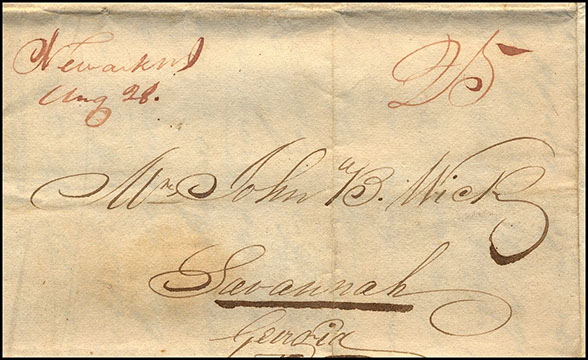 Newark NJ
Aug 28.
25
Mr. John B. Wick
Savannah
Georgia